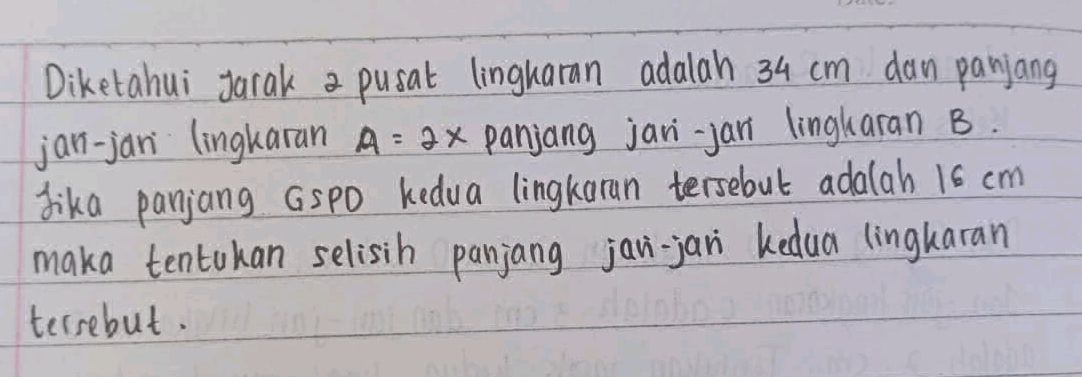 Diketahui Jarak 2 pusat lingkaran adalah 34 cm dan panjang
jari-jari lingkaran A = 2x panjang jari-jari lingkaran B.
Jika panjang GSPD kedua lingkaran tersebut adalah 16 cm
maka tentukan selisih panjang jari-jari kedua lingkaran
tersebut.